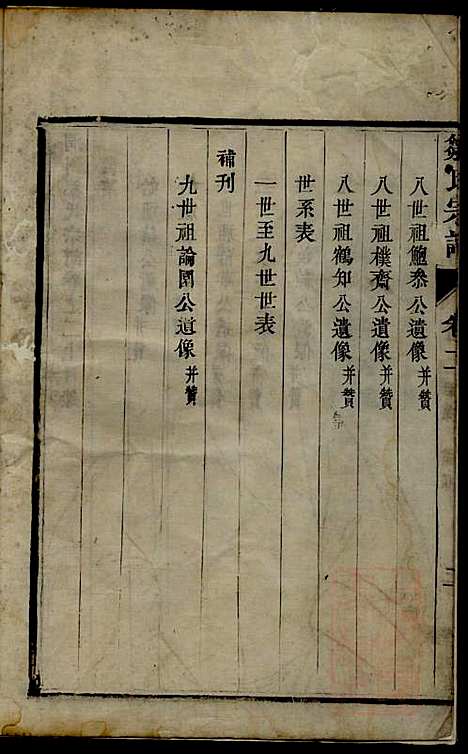 八世祖鮑叅公遺像并贊
八世祖樸齋公遺像并贊
八世祖鶴知公遺像并贊
世系表
一世至九世世表
補刊
九世祖論園公遺像并贊